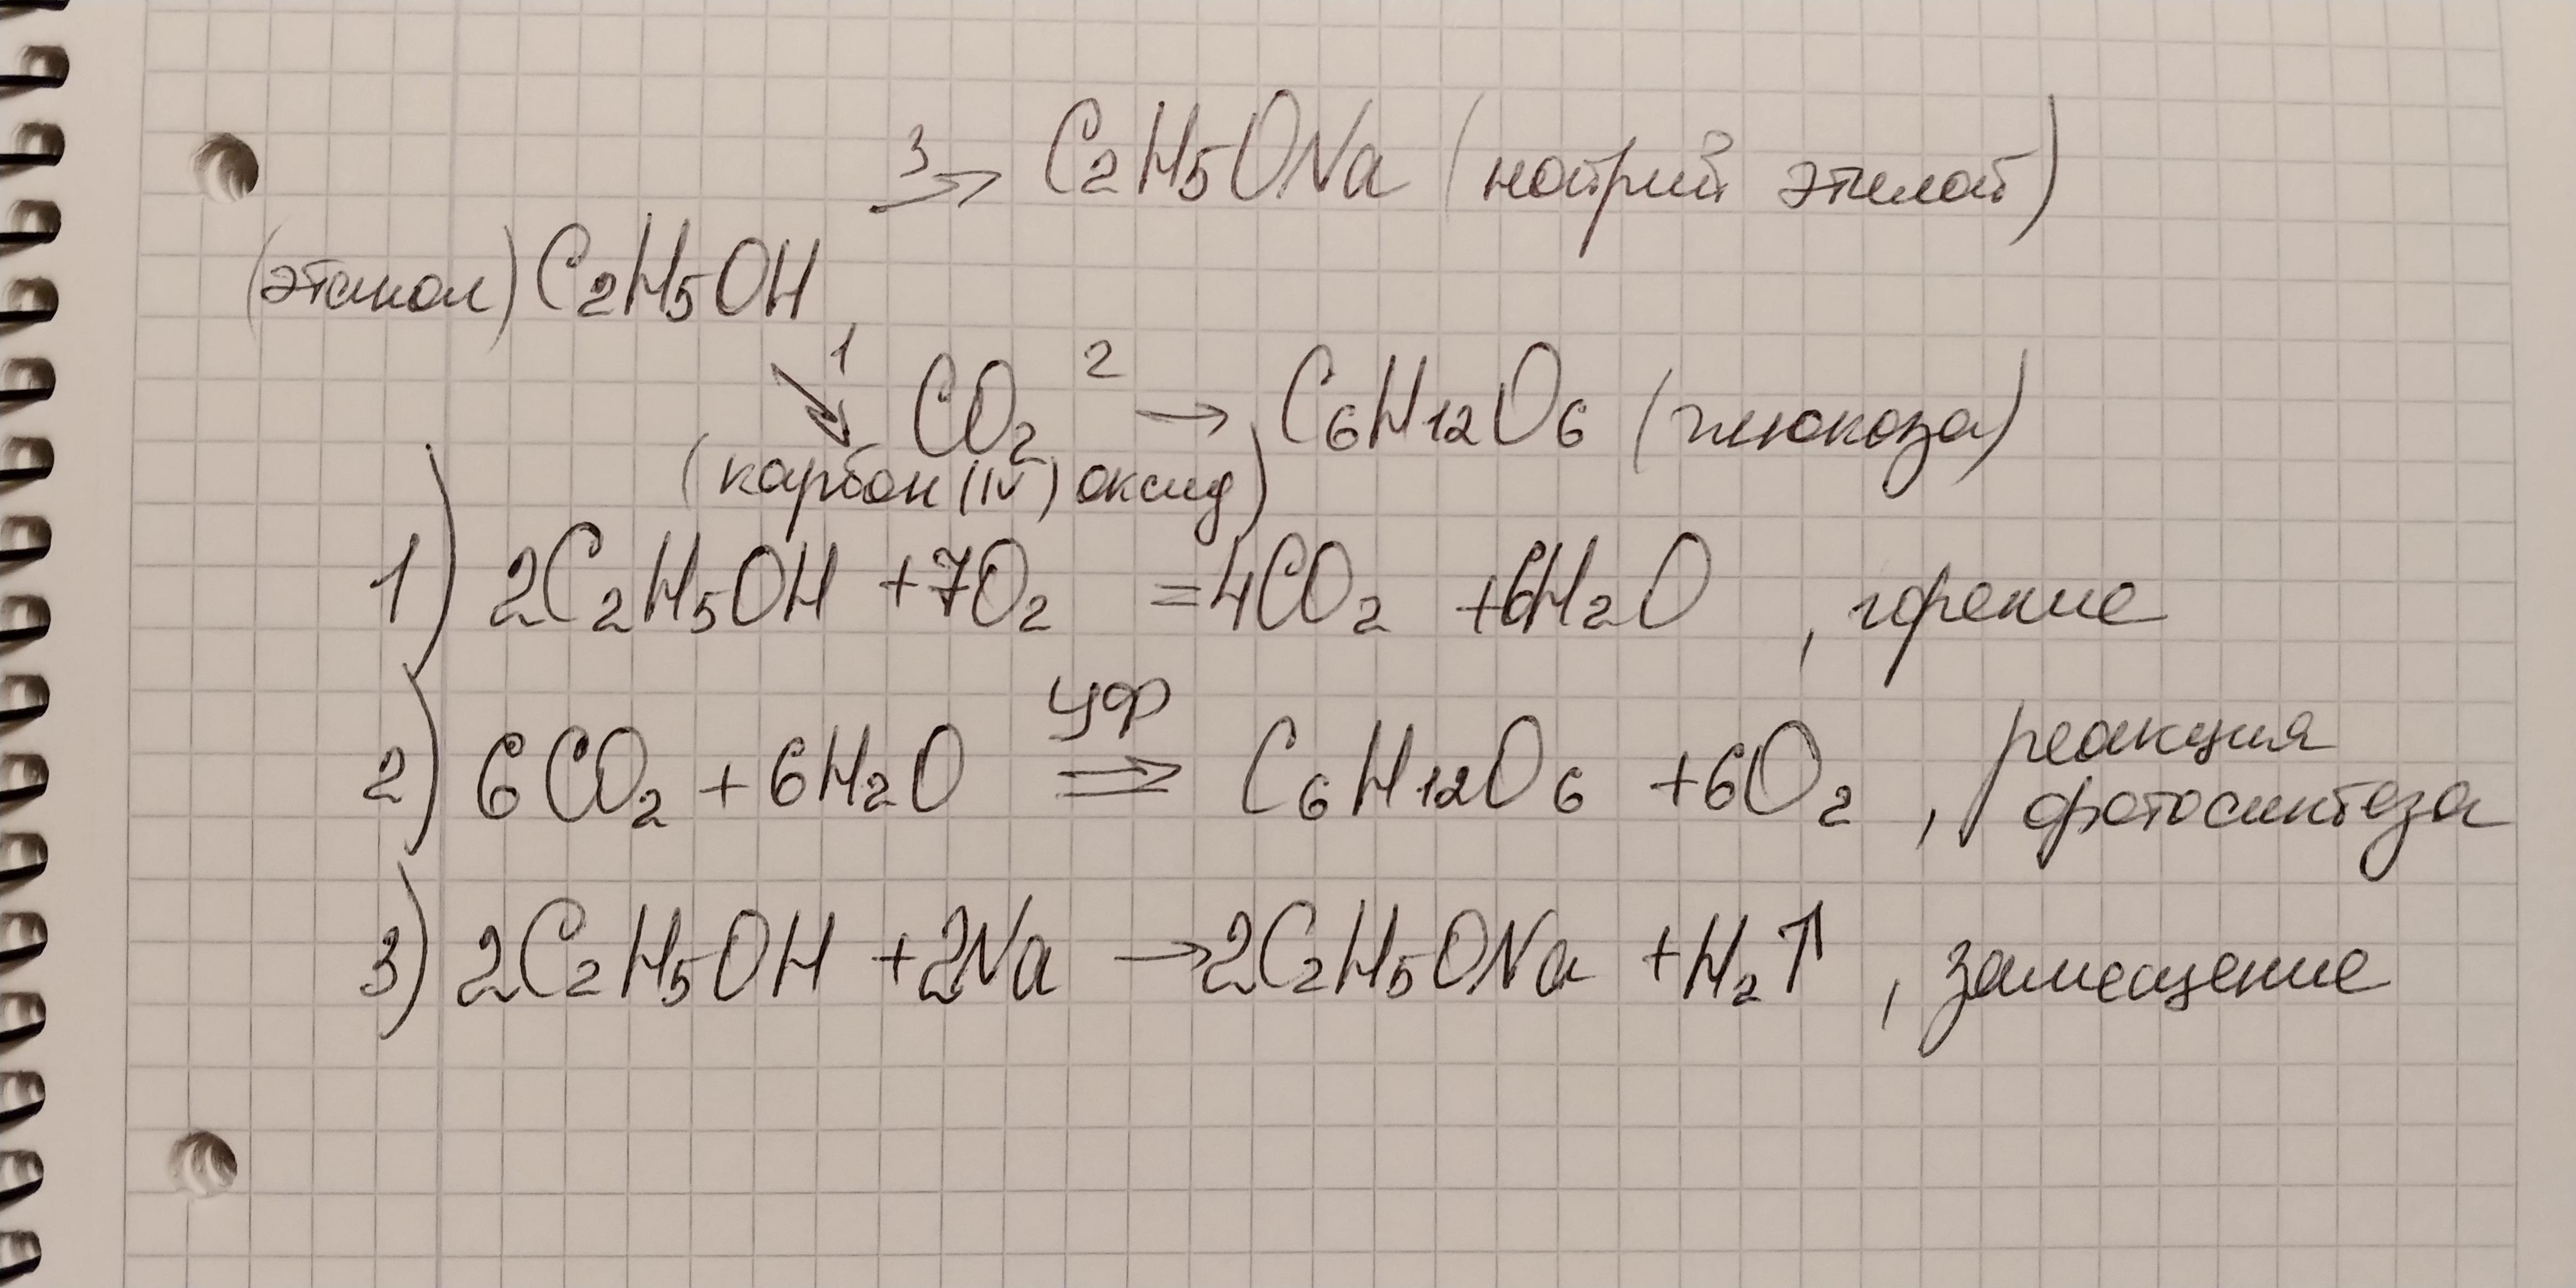 3 → C2H5ONa (натрий этилат)
(этанол) C2H5OH
1 CO2 2 → C6H12O6 (глюкоза)
(карбон (IV) оксид)
1) 2C2H5OH +7O2 =4CO2 +6H2O , горение
уф
2) 6CO2 +6H2O ⇒ C6H12O6 +6O2 , реакция
фотосинтеза
3) 2C2H5OH +2Na →2C2H5ONa +H2↑ , замещение